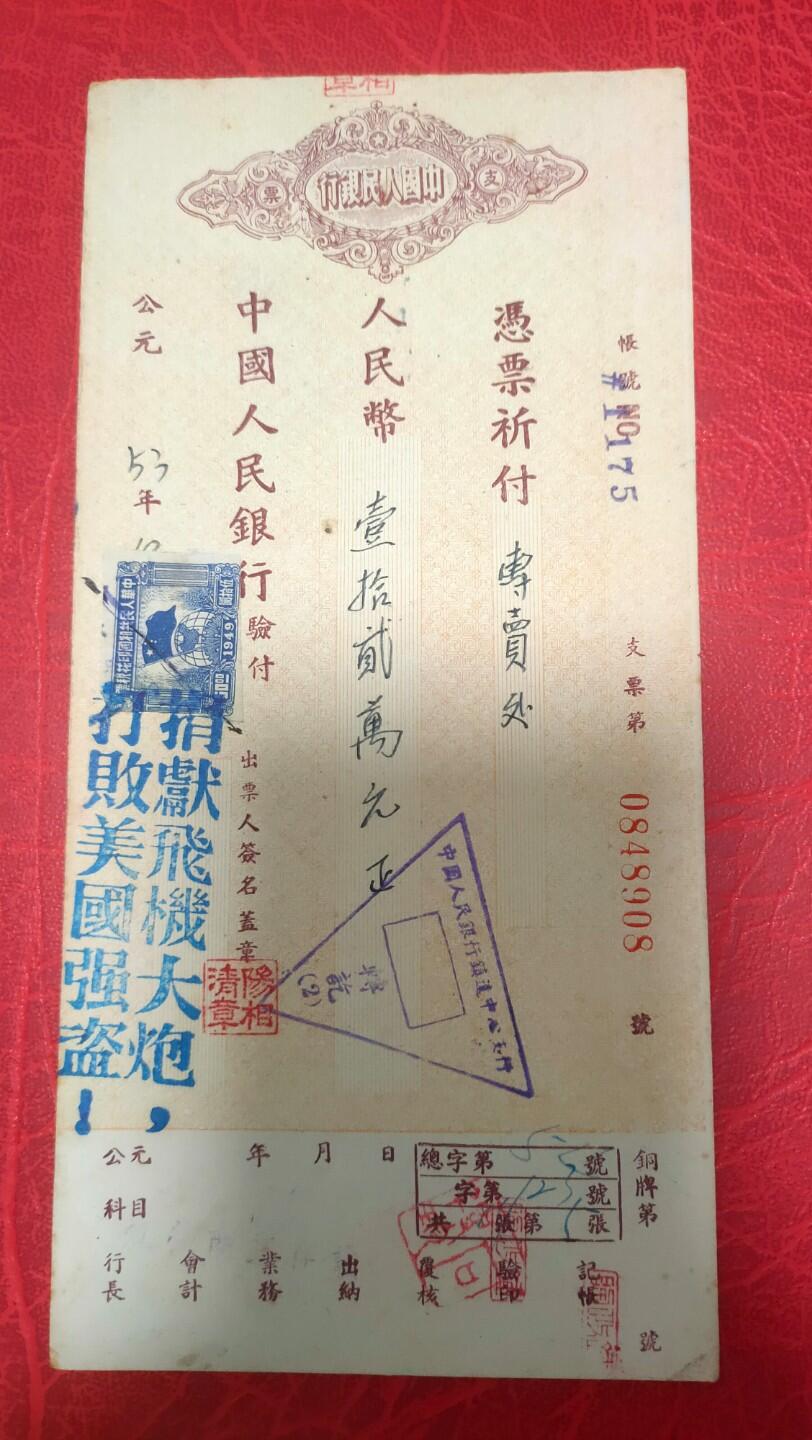 中國人民銀行
支票
帳號 NO
#1175
支票第 0848908 號
憑票祈付 專賣处
人民幣 壹拾貳萬元正
中國人民銀行 驗付
出票人簽名蓋章
陽相清章
公元 53年
中華人民共和國印花稅票
1949
捐獻飛機大炮,
打敗美國强盜!
中國人民銀行鎮遠中心支行
轉訖
(2)
公元 年 月 日
科目
總字第 號
字第 123 號
共 張第 張
銅牌第 號
行長 會計 業務 出納 覆核 驗印 記帳